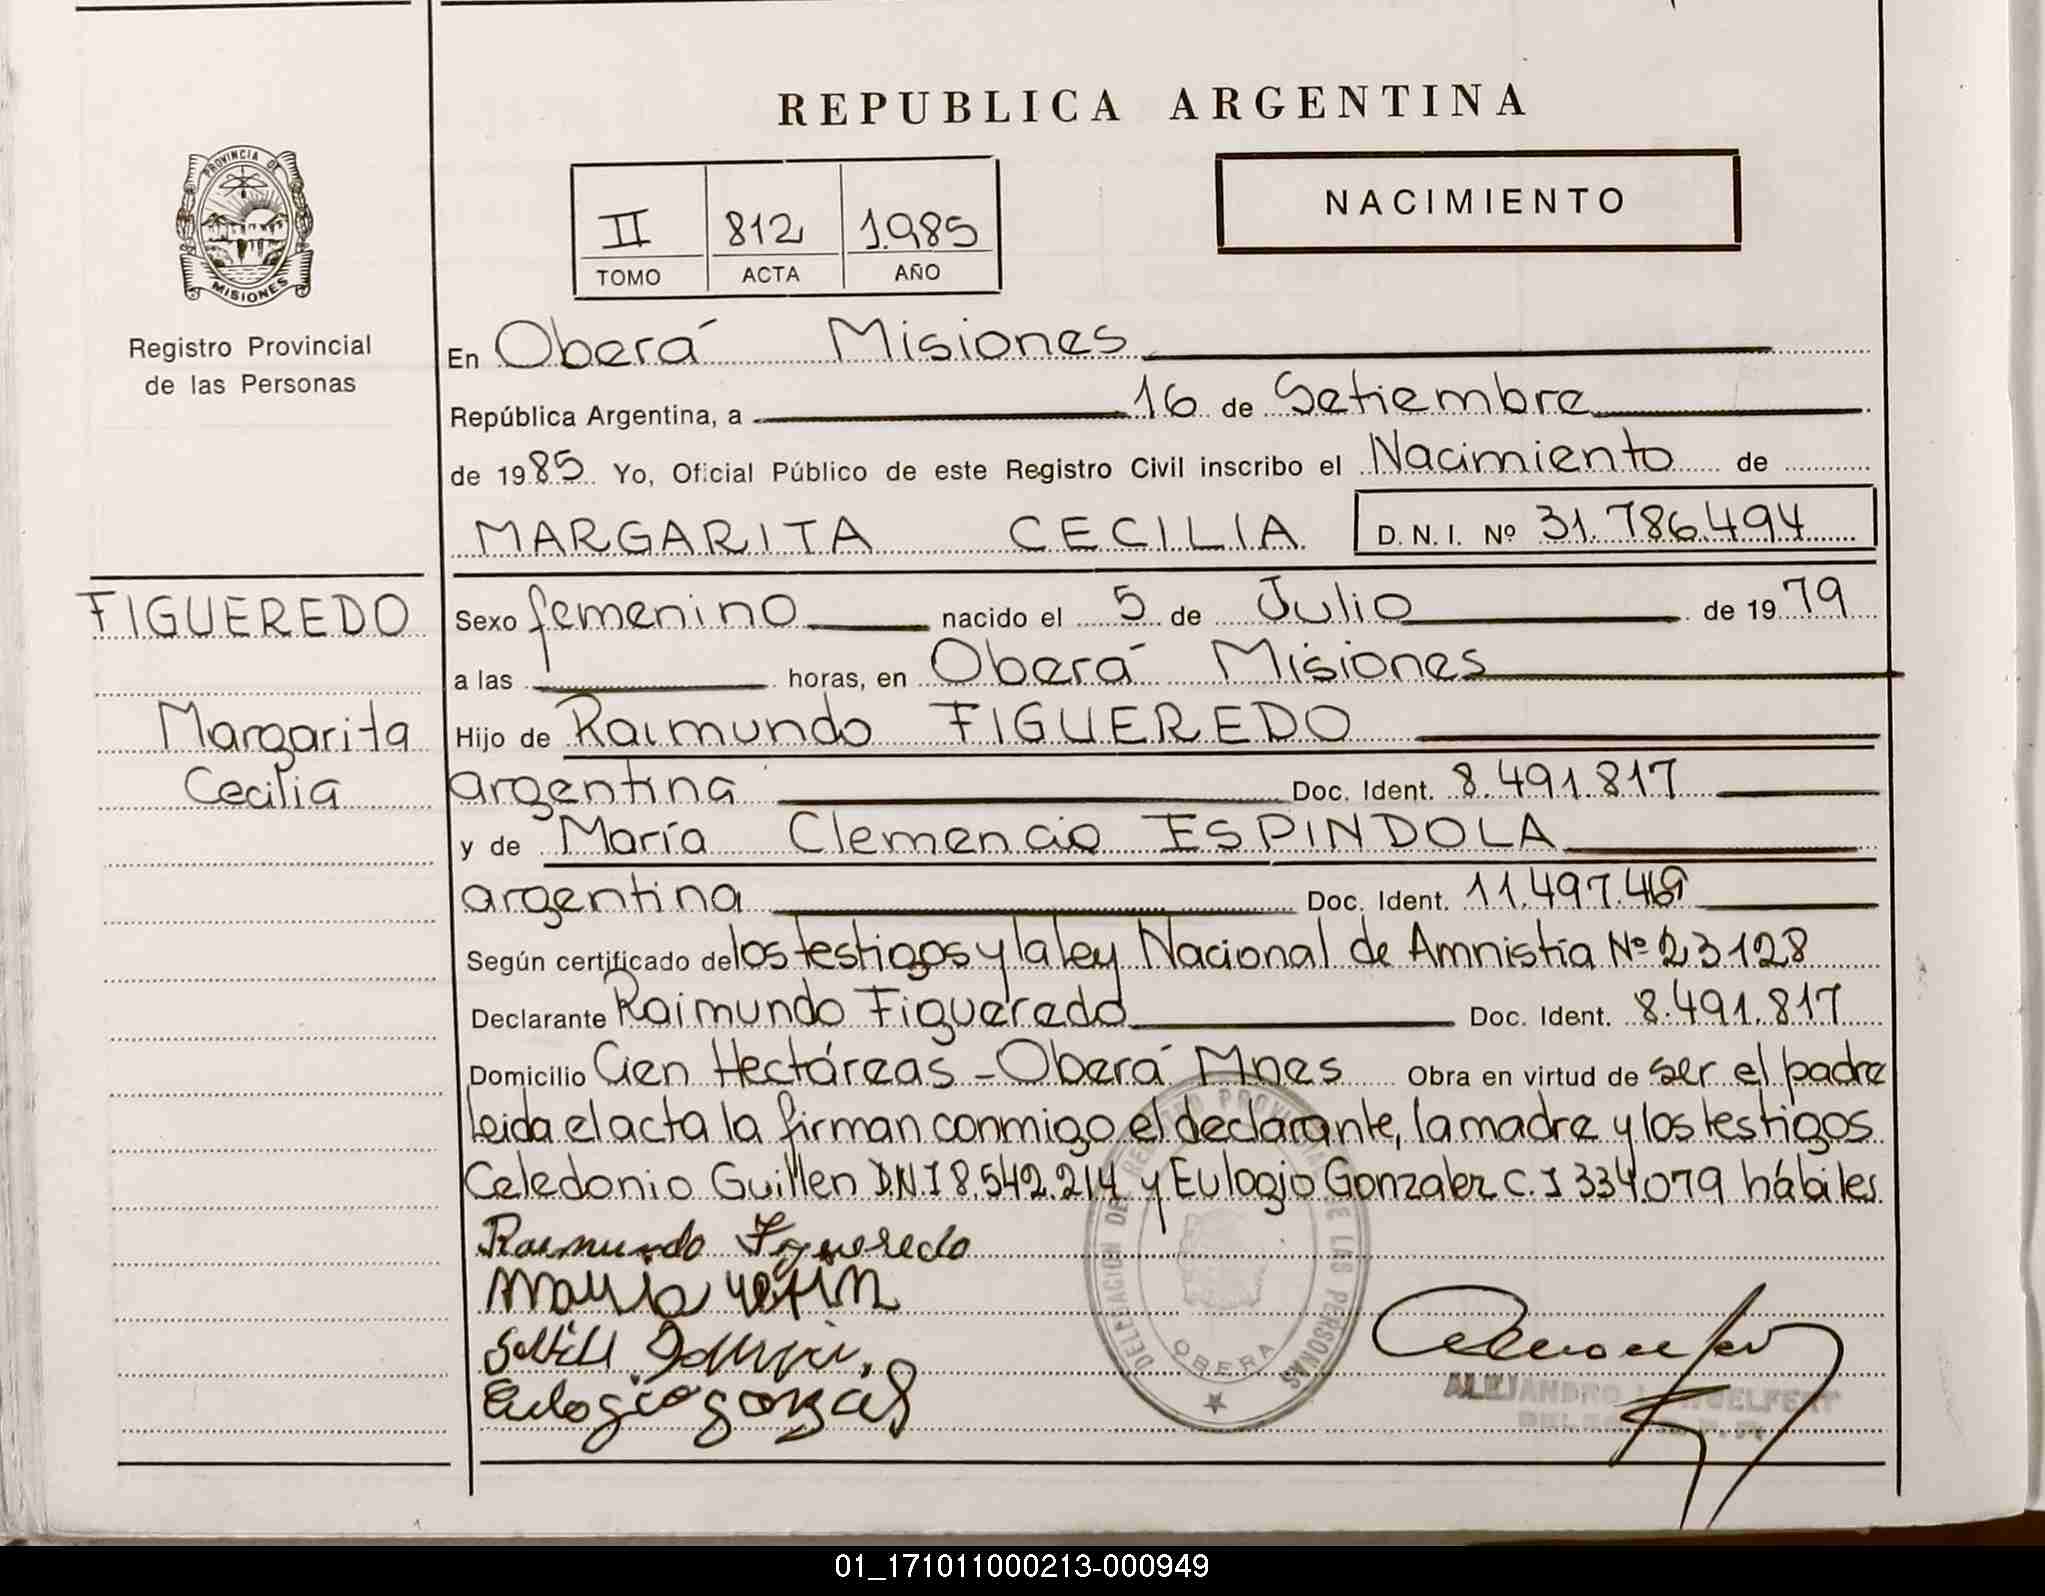 REPUBLICA ARGENTINA
PROVINCIA DE
MISIONES
Registro Provincial
de las Personas
II 812 1.985
TOMO ACTA AÑO
NACIMIENTO
En Oberá Misiones
República Argentina, a 16 de Setiembre
de 1985. Yo, Oficial Público de este Registro Civil inscribo el Nacimiento de
MARGARITA CECILIA D. N. I. Nº 31.786.494
FIGUEREDO
Margarita
Cecilia
Sexo femenino nacido el 5 de Julio de 1979
a las horas, en Oberá Misiones
Hijo de Raimundo FIGUEREDO
argentina Doc. Ident. 8.491.817
y de María Clemencia ESPINDOLA
argentina Doc. Ident. 11.497.469
Según certificado de los testigos y la ley Nacional de Amnistía Nº 23128
Declarante Raimundo Figueredo Doc. Ident. 8.491.817
Domicilio Cien Hectáreas - Oberá Mnes Obra en virtud de ser el padre
leida el acta la firman conmigo el declarante, la madre y los testigos
Celedonio Guillen D.N.I 8.542.214 y Eulogio Gonzalez C.I 334.079 hábiles
Raimundo Figueredo
Maria
Eulogio gonzal
DELEGACION DEL REGISTRO PROVINCIAL DE LAS PERSONAS
OBERA
ALEJANDRO
01_171011000213-000949